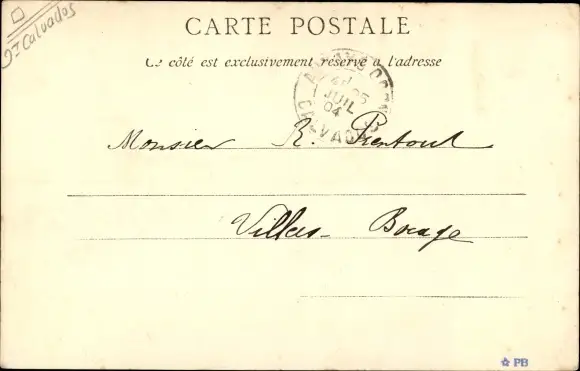 Dt Calvados
CARTE POSTALE
Ce côté est exclusivement réservé à l'adresse
25
JUIL
04
CALVADOS
Monsieur R. Prentout
Villers-Bocage
PB